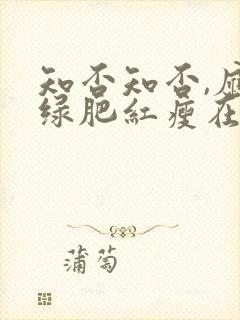 知否知否,
绿肥红瘦在
蒲萄